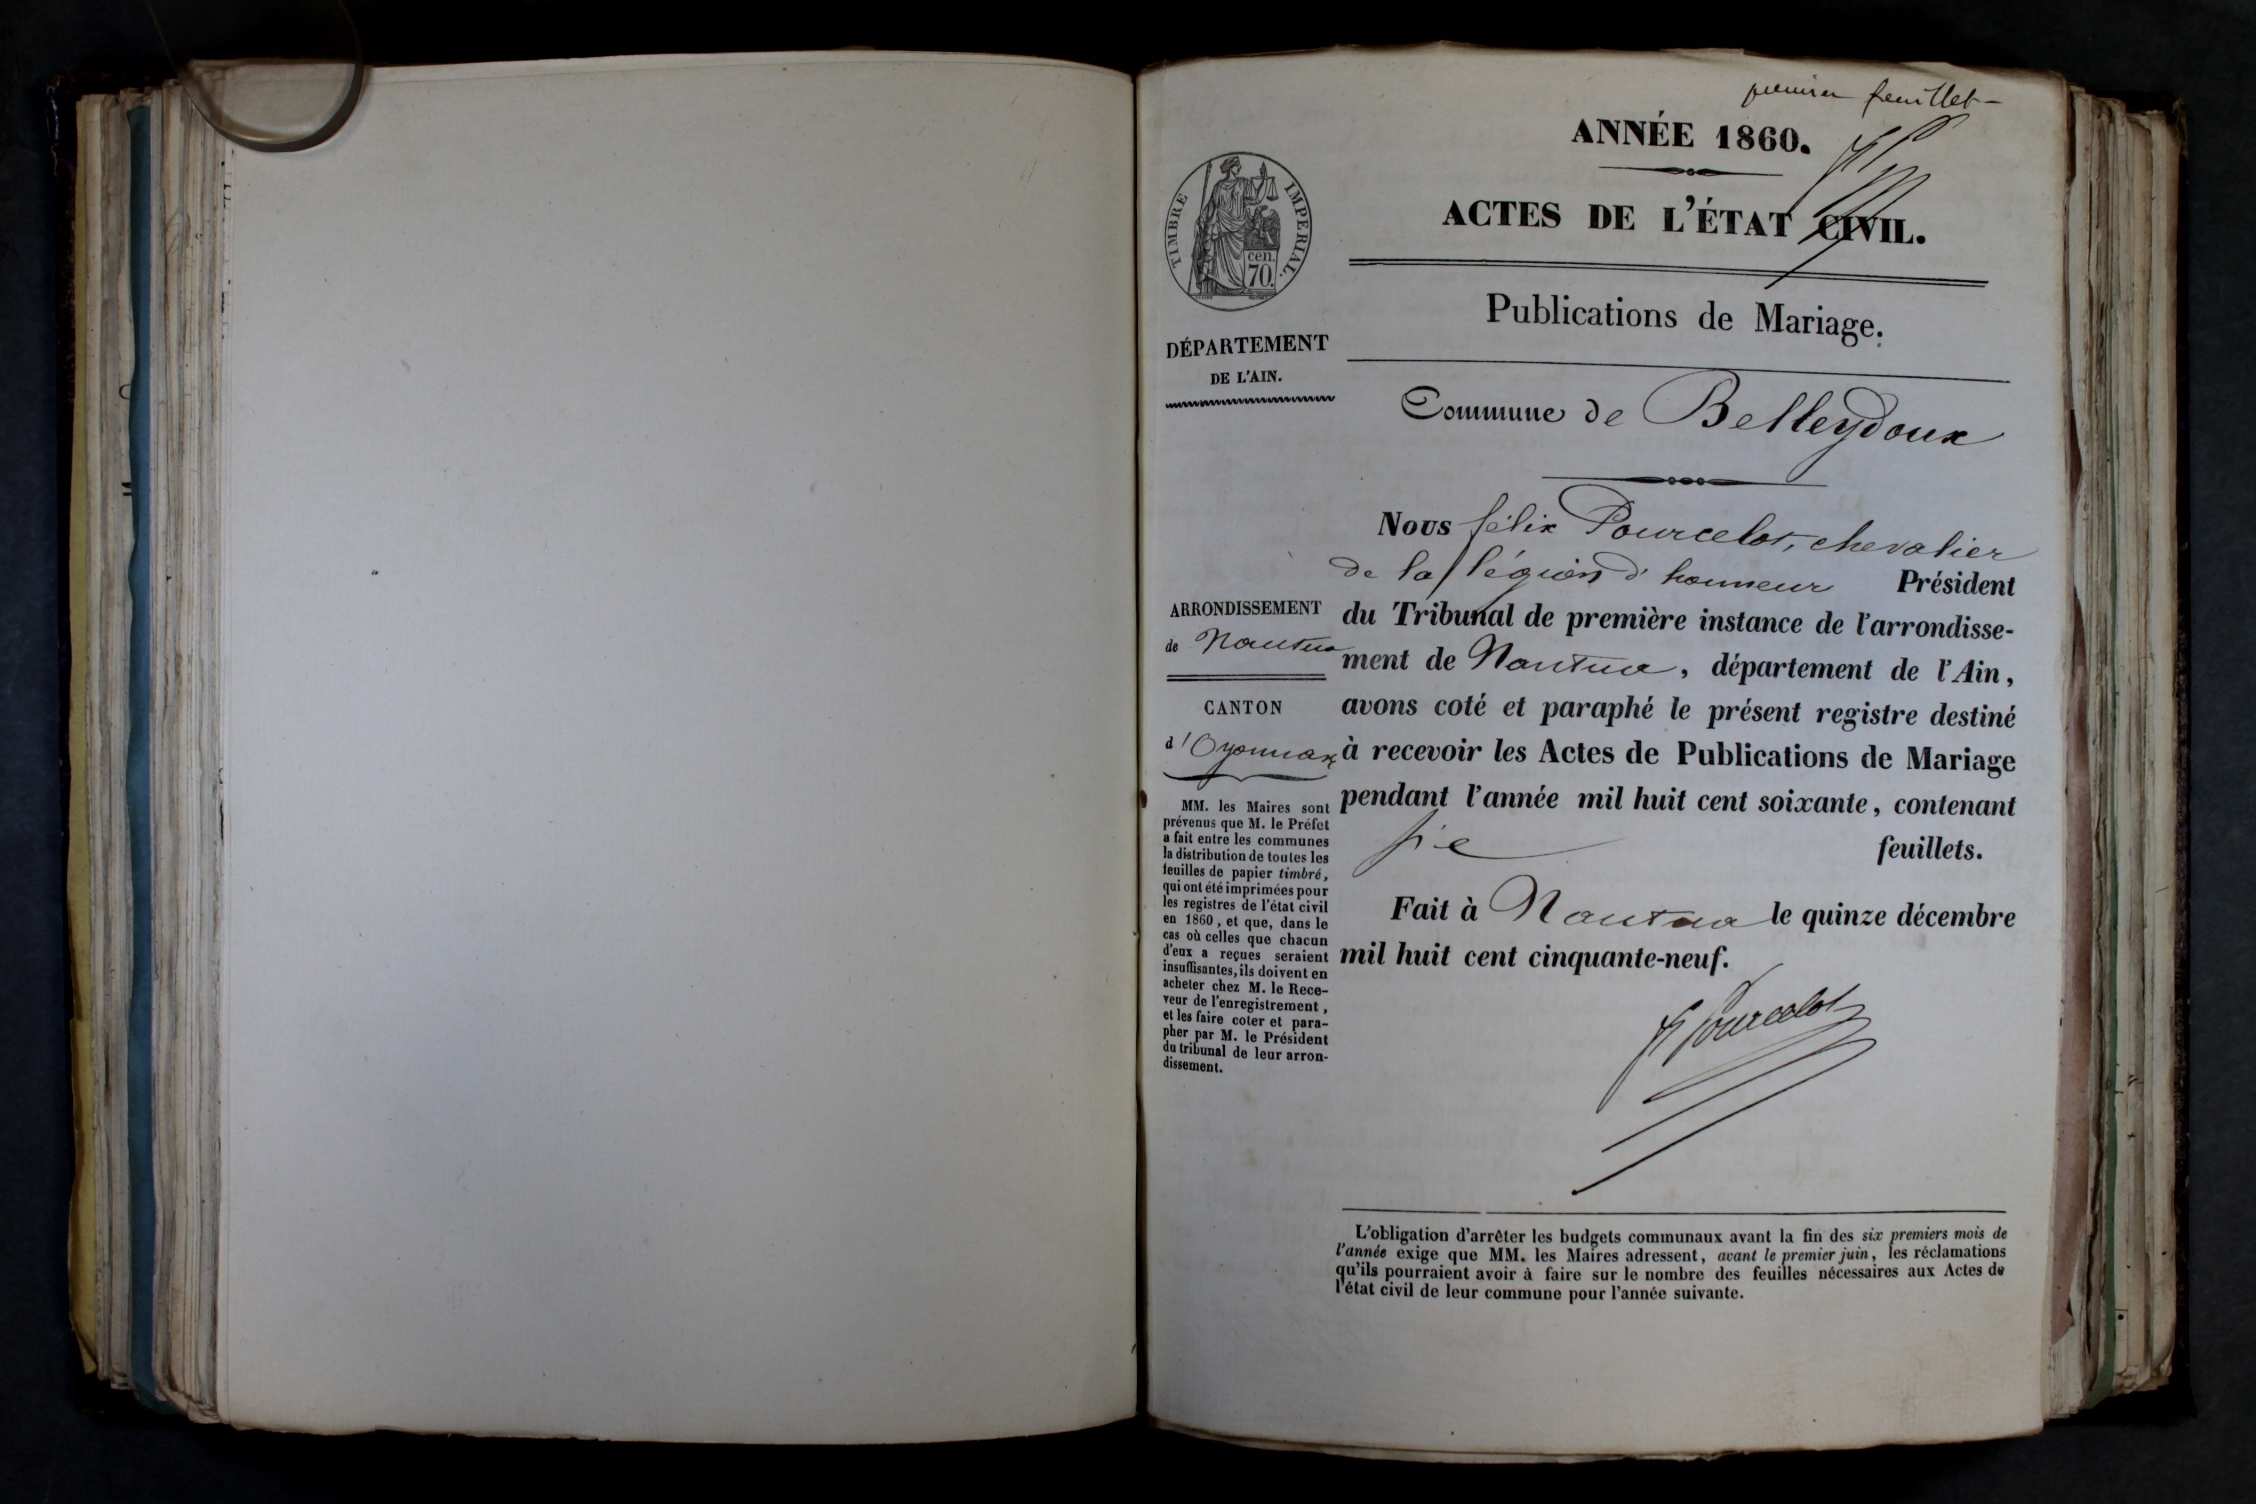 premier feuillet
ANNÉE 1860.
ACTES DE L'ÉTAT CIVIL.
TIMBRE IMPERIAL.
cen.
70.
Publications de Mariage.
DÉPARTEMENT
DE L'AIN.
Commune de Belleydoux
Nous félix Pourcelot, chevalier
de la légion d'honneur Président
du Tribunal de première instance de l'arrondisse-
ment de Nantua, département de l'Ain,
avons coté et paraphé le présent registre destiné
à recevoir les Actes de Publications de Mariage
pendant l'année mil huit cent soixante, contenant
six feuillets.
Fait à Nantua le quinze décembre
mil huit cent cinquante-neuf.
Pourcelot
ARRONDISSEMENT
de Nantua
CANTON
d'Oyonnax
MM. les Maires sont
prévenus que M. le Préfet
a fait entre les communes
la distribution de toutes les
feuilles de papier timbré,
qui ont été imprimées pour
les registres de l'état civil
en 1860, et que, dans le
cas où celles que chacun
d'eux a reçues seraient
insuffisantes, ils doivent en
acheter chez M. le Rece-
veur de l'enregistrement,
et les faire coter et para-
pher par M. le Président
du tribunal de leur arron-
dissement.
L'obligation d'arrêter les budgets communaux avant la fin des six premiers mois de
l'année exige que MM. les Maires adressent, avant le premier juin, les réclamations
qu'ils pourraient avoir à faire sur le nombre des feuilles nécessaires aux Actes de
l'état civil de leur commune pour l'année suivante.